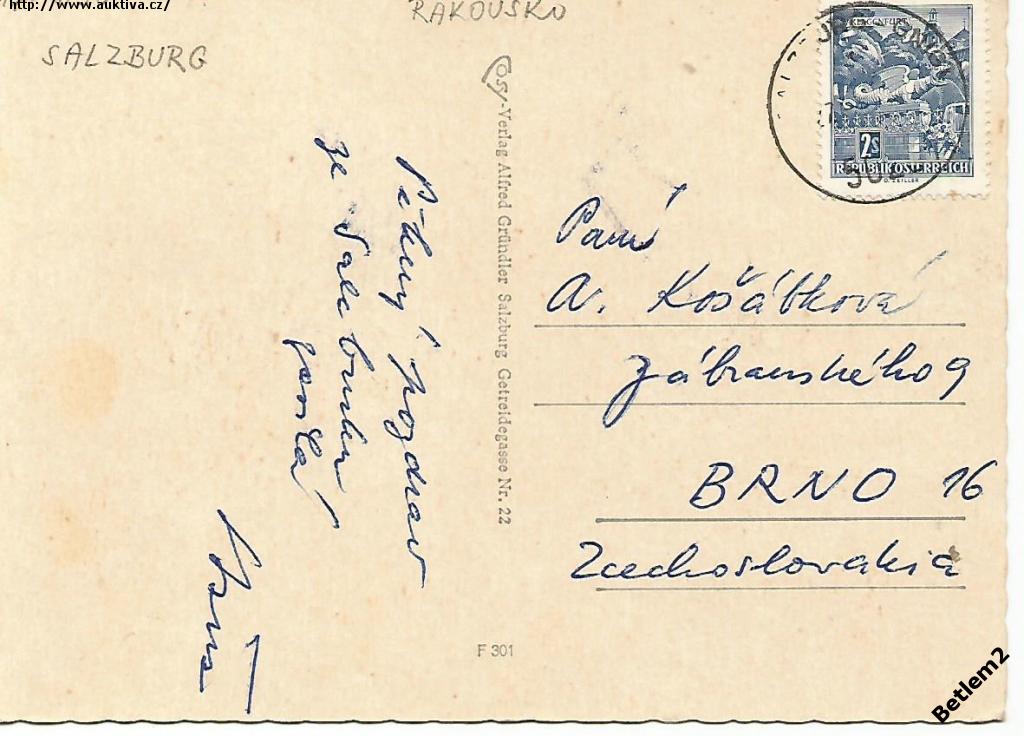 http://www.auktiva.cz/
RAKOUSKO
SALZBURG
KLAGENFURT
2S
REPUBLIK ÖSTERREICH
502
Cosy-Verlag Alfred Gründler Salzburg Getreidegasse Nr. 22
Pěkný pozdrav
ze Salcburku
Paní
A. Košátková
Zábranského 9
BRNO 16
Zechoslovakia
F 301
Betlem2